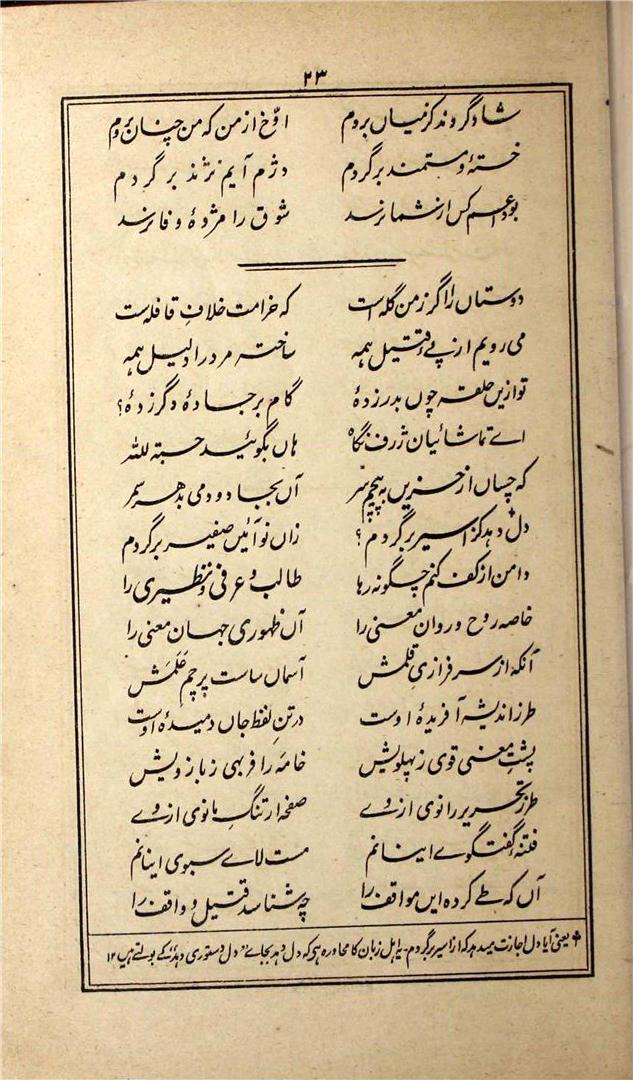 ۲۳
شاد گردند کز میاں بروم اوّخ از من کہ من چناں بروم
خستۂ و مستمند برگردم دژم آیم نژند برگردم
بوداع کس از شما نرسد شوق را مژدۂ وفا نرسد
دوستاں را اگر ز من گلہ است کہ خرامت خلافِ قافلہ است
می رویم از پے قتیل ہمہ ساختہ مر درا دلیل ہمہ
تو ازیں حلقہ چوں بدر زدۂ گام بر جادۂ دگر زدۂ؟
اے تماشائیان ژرف نگاہ ہاں بگوئید حسبتہ للہ
کہ چساں از حزیں بہ پیچم سر آں بجادو دمی بدہر سمر
دل دہد کز اسیر برگردم؟ زاں نو آئیں صفیر برگردم
دامن از کف کنم چگونہ رہا طالب و عرفی و نظیری را
خاصہ روح و روان معنی را آں ظہوری جہان معنی را
آنکہ از سرفرازیِ قلمش آسماں ساست پرچمِ عَلَمَش
طرز اندیشہ آفریدۂ اوست در تنِ لفظ جاں دمیدۂ اوست
پشتِ معنی قوی ز پہلویش خامہ را فربہی ز بازویش
طرز تحریر را نوی از وے صفحہ ارتنگِ مانوی از وے
فتنۂ گفتگوے اینانم مست لاے سبوی اینانم
آں کہ طے کردہ ایں مواقف را چہ شناسد قتیل و واقف را
یعنی آیا دل اجازت میدہد کہ از اسیر برگردم۔ یہ اہل زبان کا محاورہ ہی کہ دل دہد بجاے "دل دستوری دہد" کے بولتے ہیں ۱۲